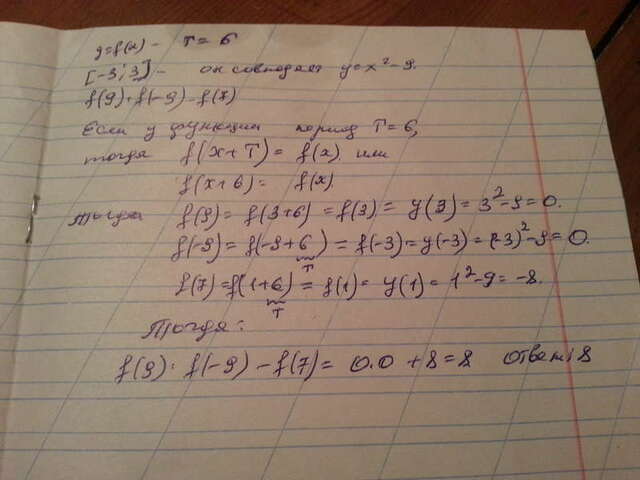 y=f(x) - T = 6
[-3; 3] - он совпадает y=x²-9.
f(9)·f(-9)-f(7)
Если у функции период T=6,
тогда f(x+T) = f(x) или
f(x+6) = f(x)
Тогда f(9) = f(3+6) = f(3) = y(3) = 3²-9=0.
f(-9) = f(-9+6) = f(-3) = y(-3) = (-3)²-9=0.
T
f(7) = f(1+6) = f(1) = y(1) = 1²-9=-8.
T
Тогда:
f(9)·f(-9)-f(7) = 0.0 +8=8 ответ: 8